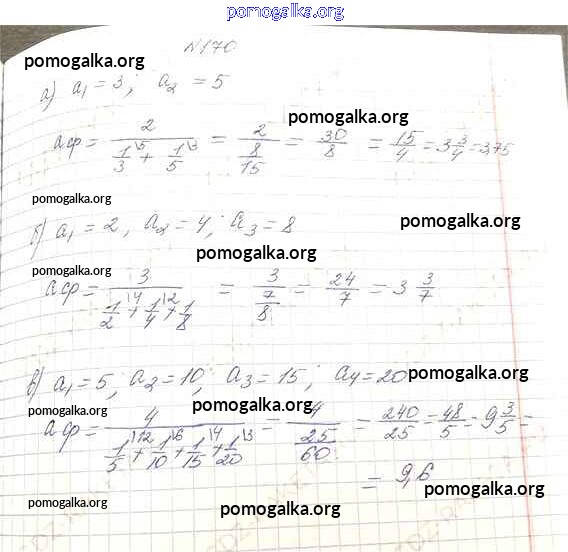 pomogalka.org
N 170
pomogalka.org
а) a₁ = 3; a₂ = 5
pomogalka.org
aср = 2 / (1/3 \5 + 1/5 \3) = 2 / (8/15) = 30/8 = 15/4 = 3 3/4 = 3,75
pomogalka.org
pomogalka.org
б) a₁ = 2, a₂ = 4; a₃ = 8
pomogalka.org
pomogalka.org
aср = 3 / (1/2 \4 + 1/4 \2 + 1/8) = 3 / (7/8) = 24/7 = 3 3/7
в) a₁ = 5; a₂ = 10; a₃ = 15; a₄ = 20
pomogalka.org
pomogalka.org
pomogalka.org
aср = 4 / (1/5 \12 + 1/10 \6 + 1/15 \4 + 1/20 \3) = 4 / (25/60) = 240/25 = 48/5 = 9 3/5 =
= 9,6
pomogalka.org
pomogalka.org
pomogalka.org